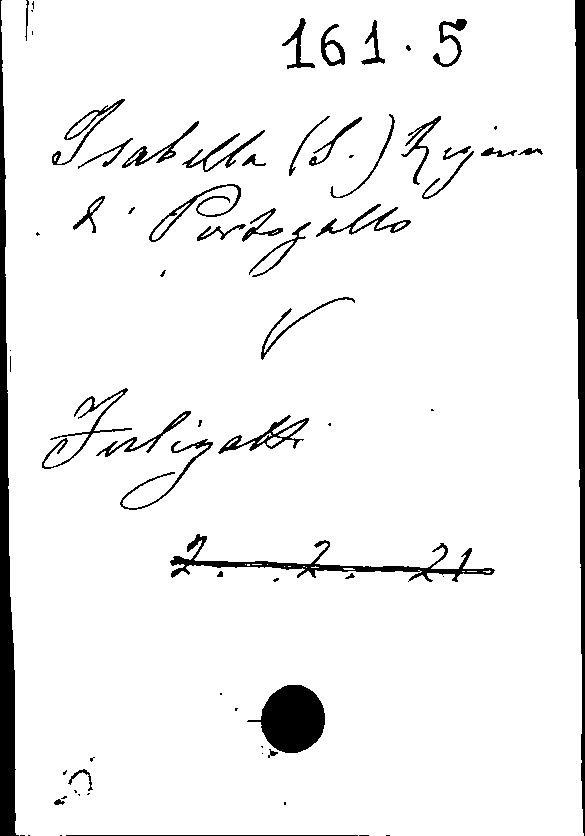 161.5
Isabella (S.) Regina
di Portogallo
V
Fuligatti
2. 2. 21